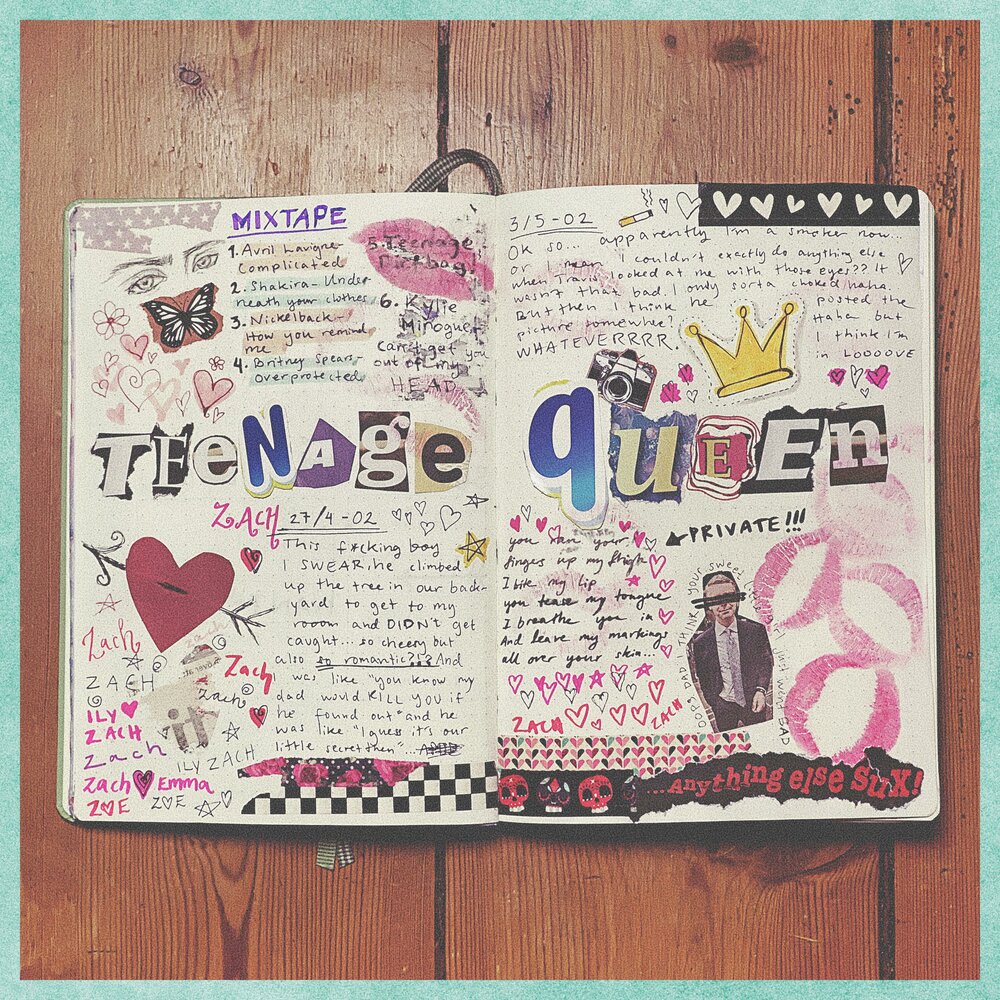 MIXTAPE
1. Avril Lavigne-
Complicated
2. Shakira- Under
neath your clothes
3. Nickelback-
How you remind
me
4. Britney Spears-
overprotected
5. Teenage
Dirtbag!
6. Kylie
Minogue-
can't get you
out of my
HEAD
TEENAGE
ZACH 27/4-02
This f*cking boy
I SWEAR. he climbed
up the tree in our back-
yard to get to my
room and DIDN't get
caught... so cheesy but
also so romantic?!? And
I was like "you know my
dad would KILL YOU if
he found out" and he
was like "I guess it's our
little secret then"...
Zach
ZACH
ILY
ZACH
Zach
Zach Emma
Z E
Z E
Zach
Zach
ILY ZACH
it
3/5-02
Ok so... apparently I'm a smoker now...
or I mean I couldn't exactly do anything else
when Travis looked at me with those eyes?? It
wasn't that bad. I only sorta choked haha.
But then I think he posted the
picture somewhee? Haha but
WHATEVERRRR. I think I'm
in LOOOOVE
queen
PRIVATE!!!
you stan your
fingers up my thigh
I bite my lip
you tease my tongue
I breathe you in
And leave my markings
all over your skin...
ZACH
ZACH
OOPS DAD I THINK YOUR SWEET
...Anything else SuX!